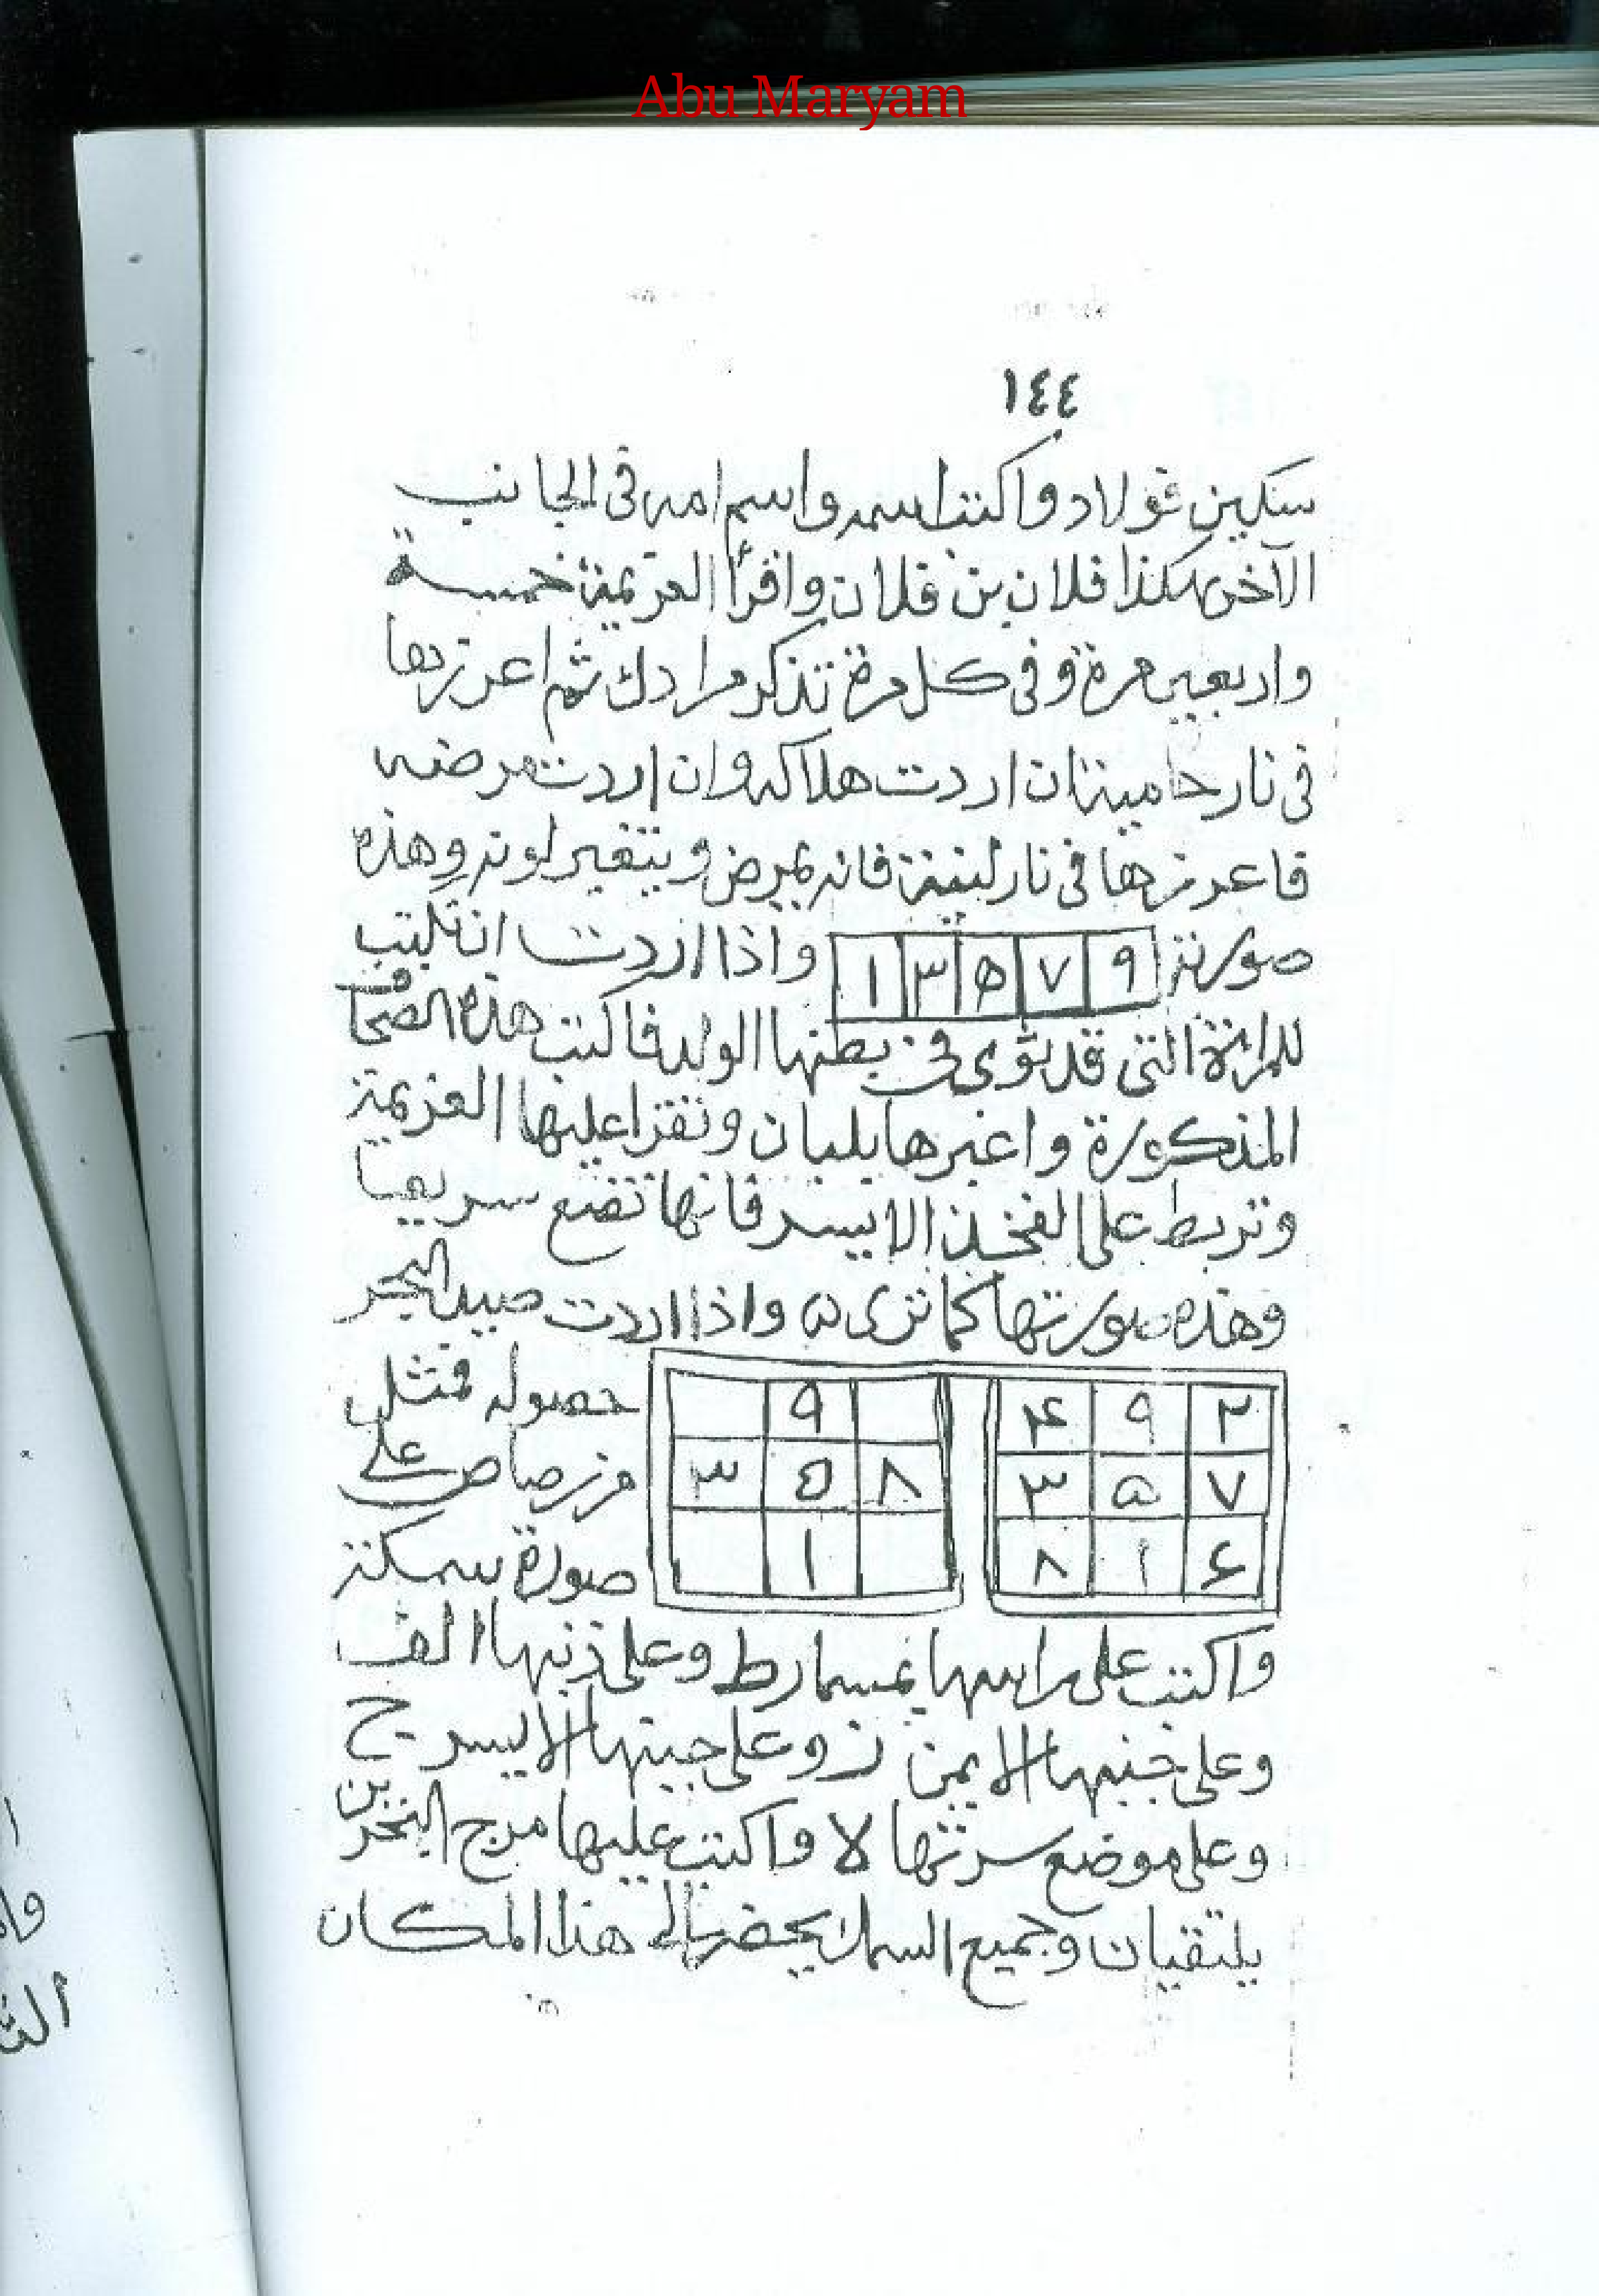 Abu Maryam
١٤٤
سكين فولاد واكتب اسمه واسم امه فى الجانب
الآخر هكذا فلان بن فلان واقرأ العزيمة خمسة
واربعين مرة وفى كل مرة تذكر مرادك ثم اعرزها
فى نار حامية ان اردت هلاكه وان اردت مرضه
فاعرزها فى نار لينة فانه يمرض ويتغير لونه وهذه
صورته ٩ ٧ ۵ ٣ ١ واذا اردت ان تكتب
للمراة التى قد توى فى بطنها الولد فاكتب هذه
المذكورة وبلبان وتقرا عليها العزيمة
وتربط على الفخذ الايسر فانها تضع سريعا
وهذه صورتها كما ترى ۵ واذا اردت صيد البحر
٢ ٩ ۴ ٩ حصوله فمثل
٧ ۵ ٣ ٨ ۵ ٣ من رصاص على
۶ ١ ٨ ١ صورة سمكة
واكتب على راسها بمسمار ط وعلى ذنبها الف
وعلى جنبها الايمن ز وعلى جنبها الايسر ج
وعلى موضع سرتها لا واكتب عليها مرج البحرين
يلتقيان وجميع السمك يحضر الى هذا المكان